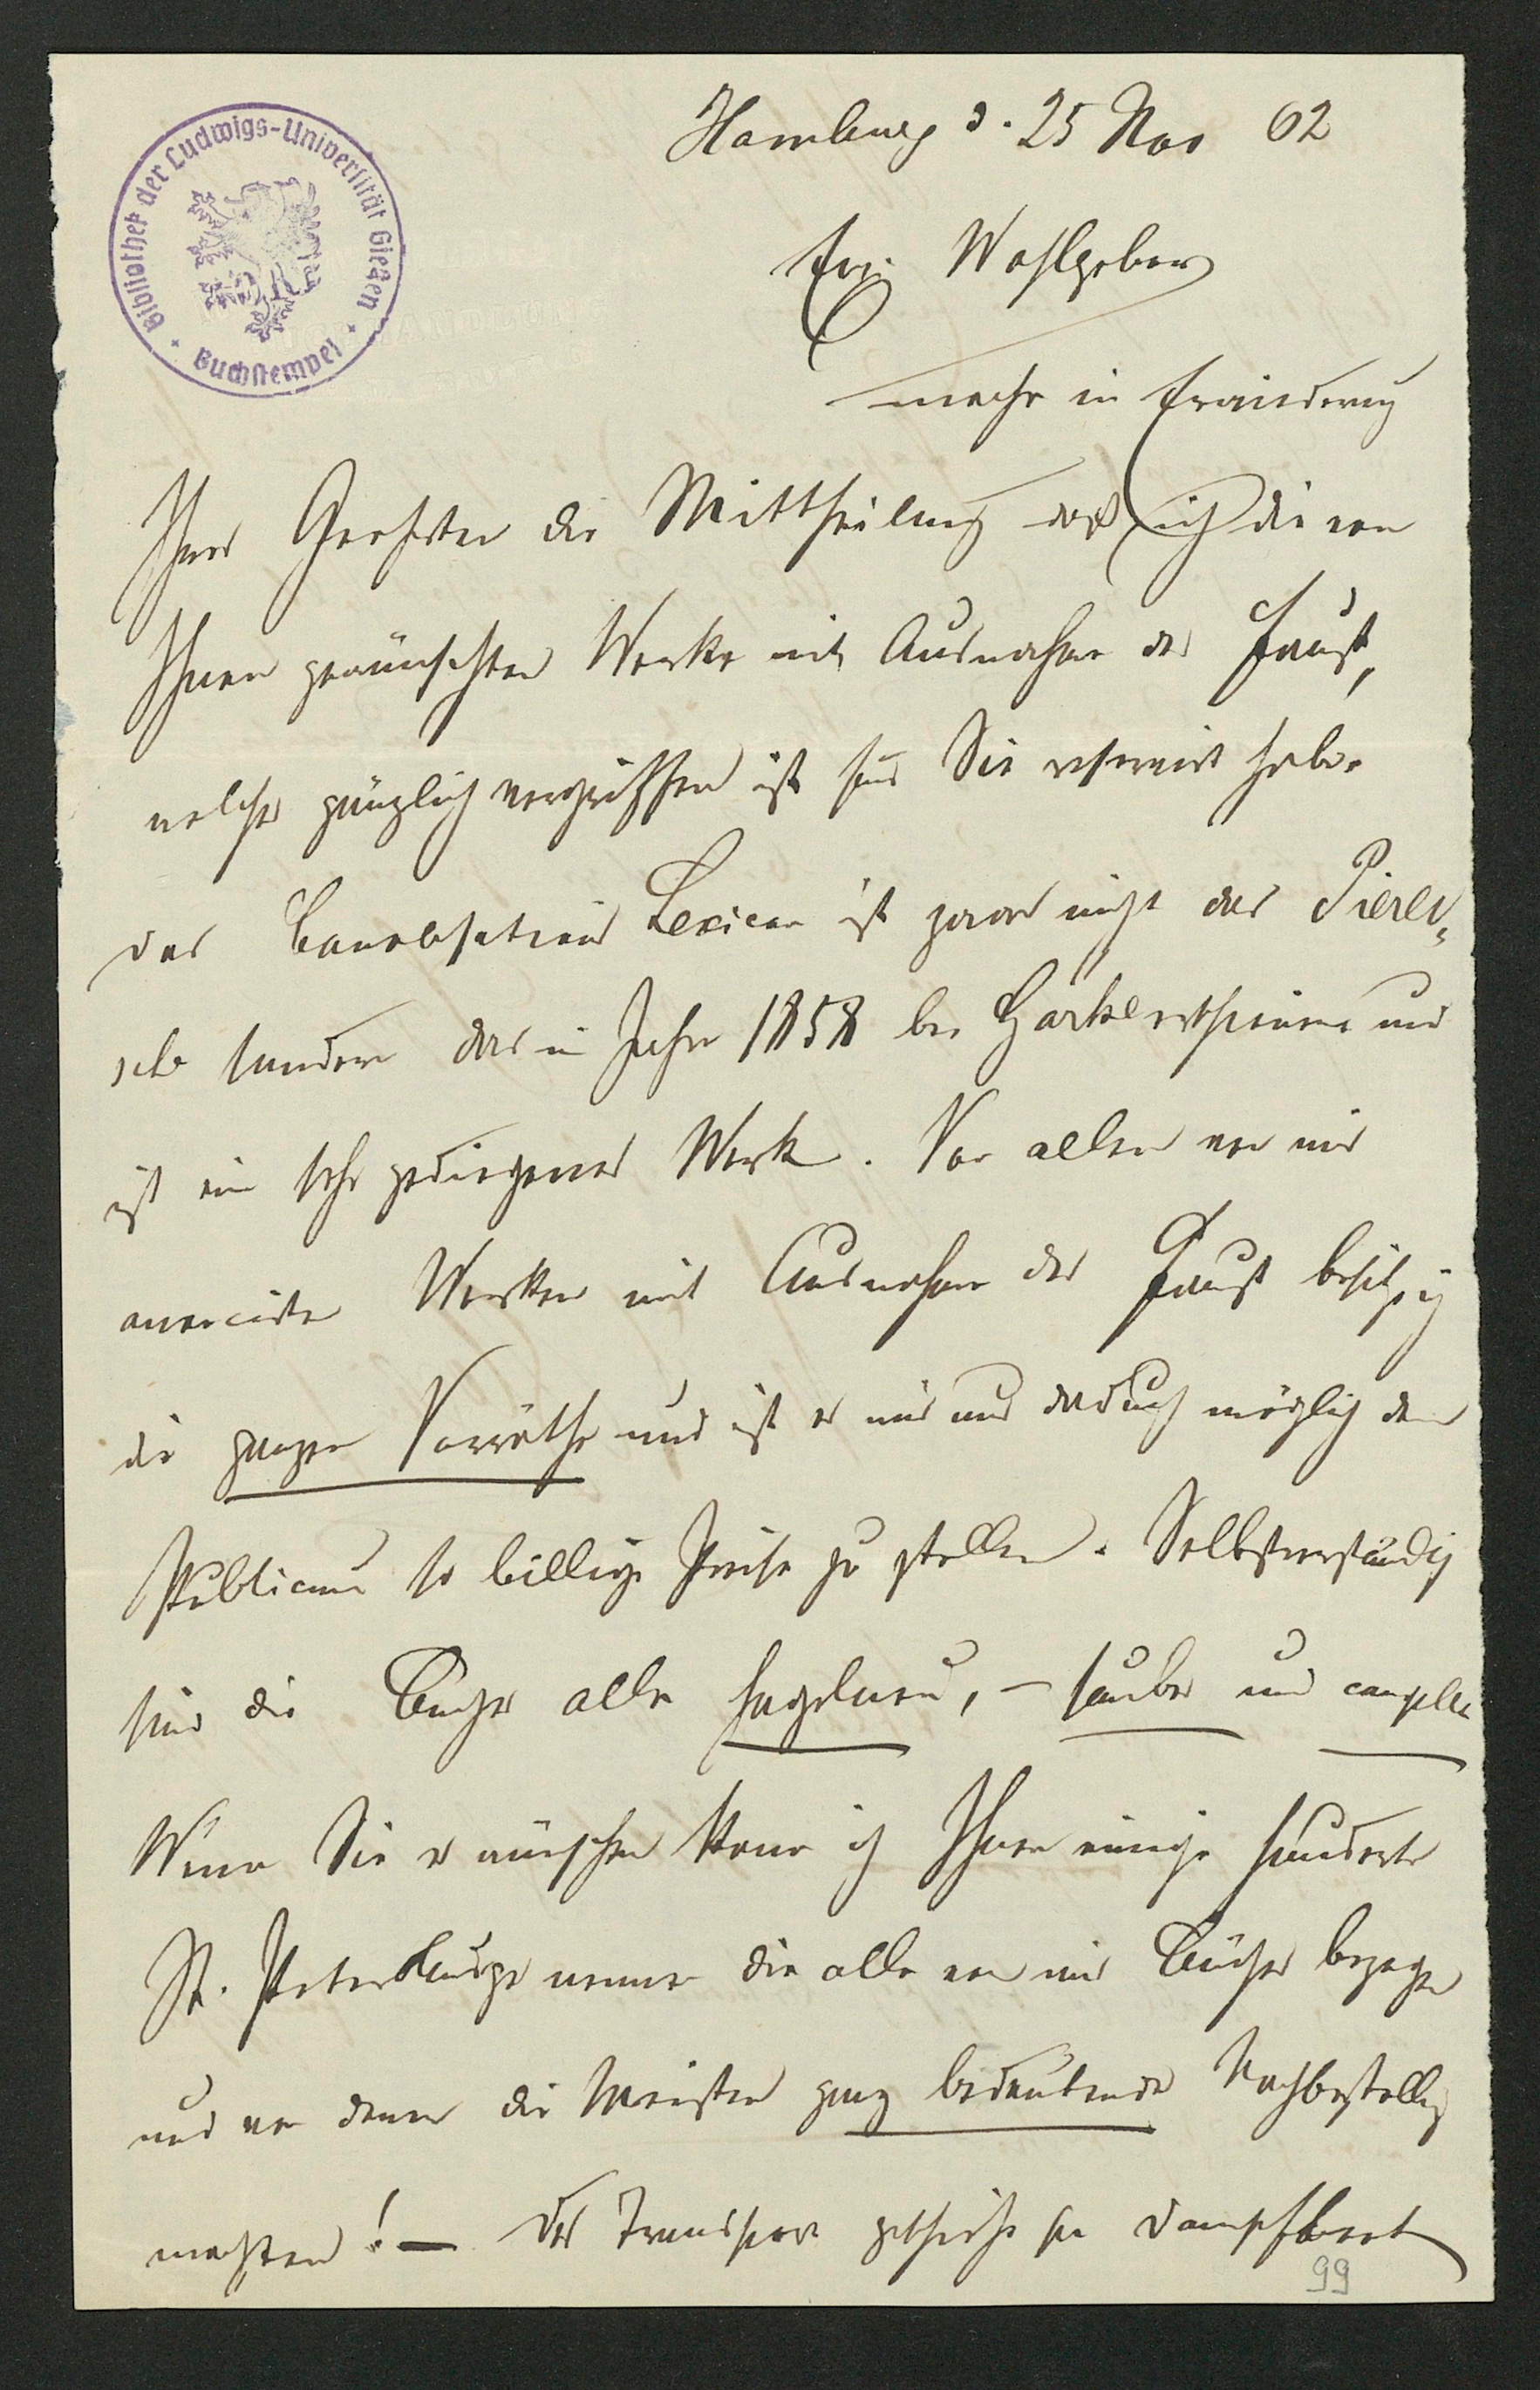 Bibliothek der Ludwigs-Universität Gießen
Buchstempel
Hamburg d. 25 Nov 62
Euer Wohlgeboren
mache in Erwiederung
Ihres Geehrten die Mittheilung daß ich die von
Ihnen gewünschten Werke mit Ausnahme des Faust,
welcher gänzlich vergriffen ist für Sie reservirt habe
das Conversations Lexicon ist zwar nicht das Pierer,
sche sondern das im Jahre 1858 bei erschienene und
ist ein sehr gediegenes Werk. Von allen von mir
annoncirten Werken mit Ausnahme des Faust besitze ich
die ganzen Vorräthe und ist es mir nur dadurch möglich dem
Publicum so billige Preise zu stellen. Selbstverständig
sind die Bücher alle sauber und complet
Wenn Sie es wünschen kann ich Ihnen einige hunderte
St. Petersburger nennen die alle von mir Bücher bezogen
und von denen die Meisten ganz bedeutende Nachbestellung
machten! — Der Transport geschieht per Dampfboot
99